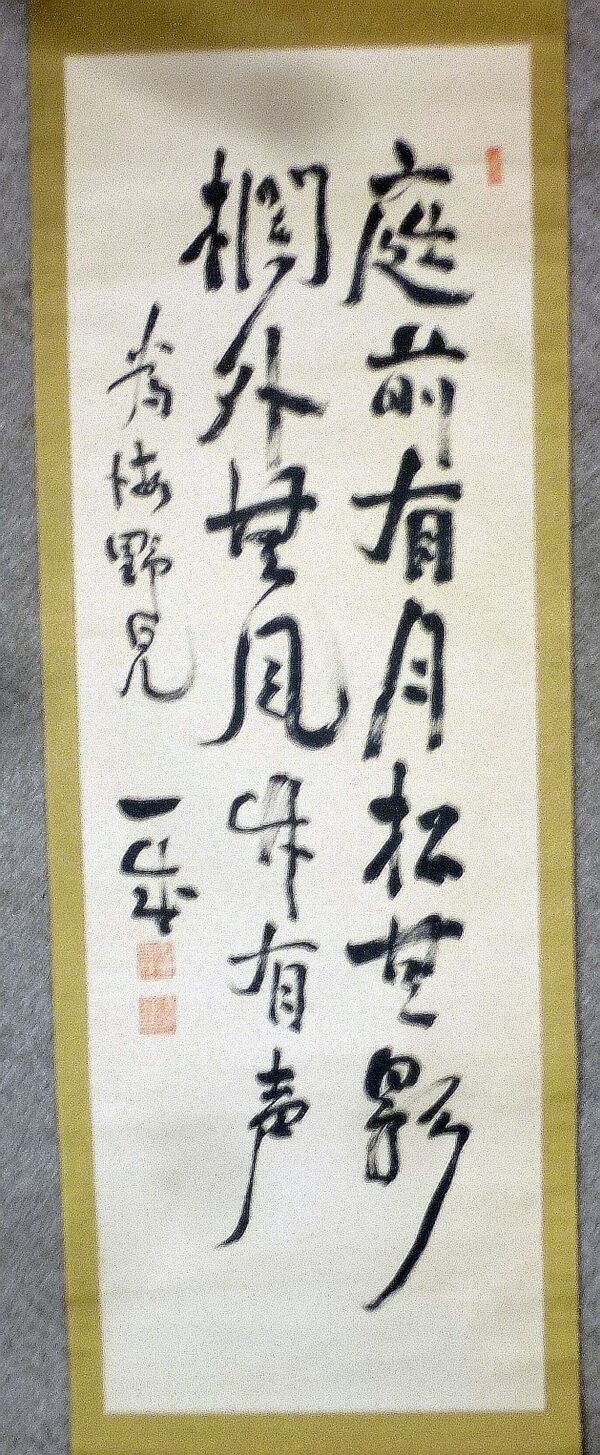 庭前有月松無影
欄外無風竹有声
為梅野兄
一成